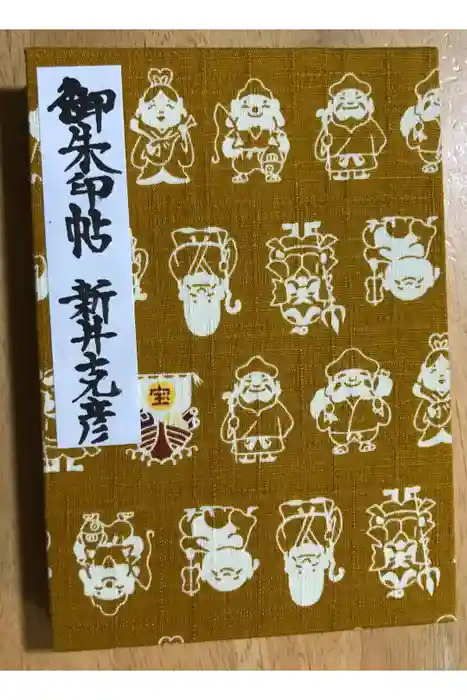 御朱印帖 新井克彦
宝